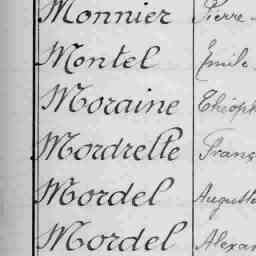 Monnier Pierre
Montel Emile
Moraine Théoph
Mordrelle Franç
Mordel Auguste
Mordel Alexan